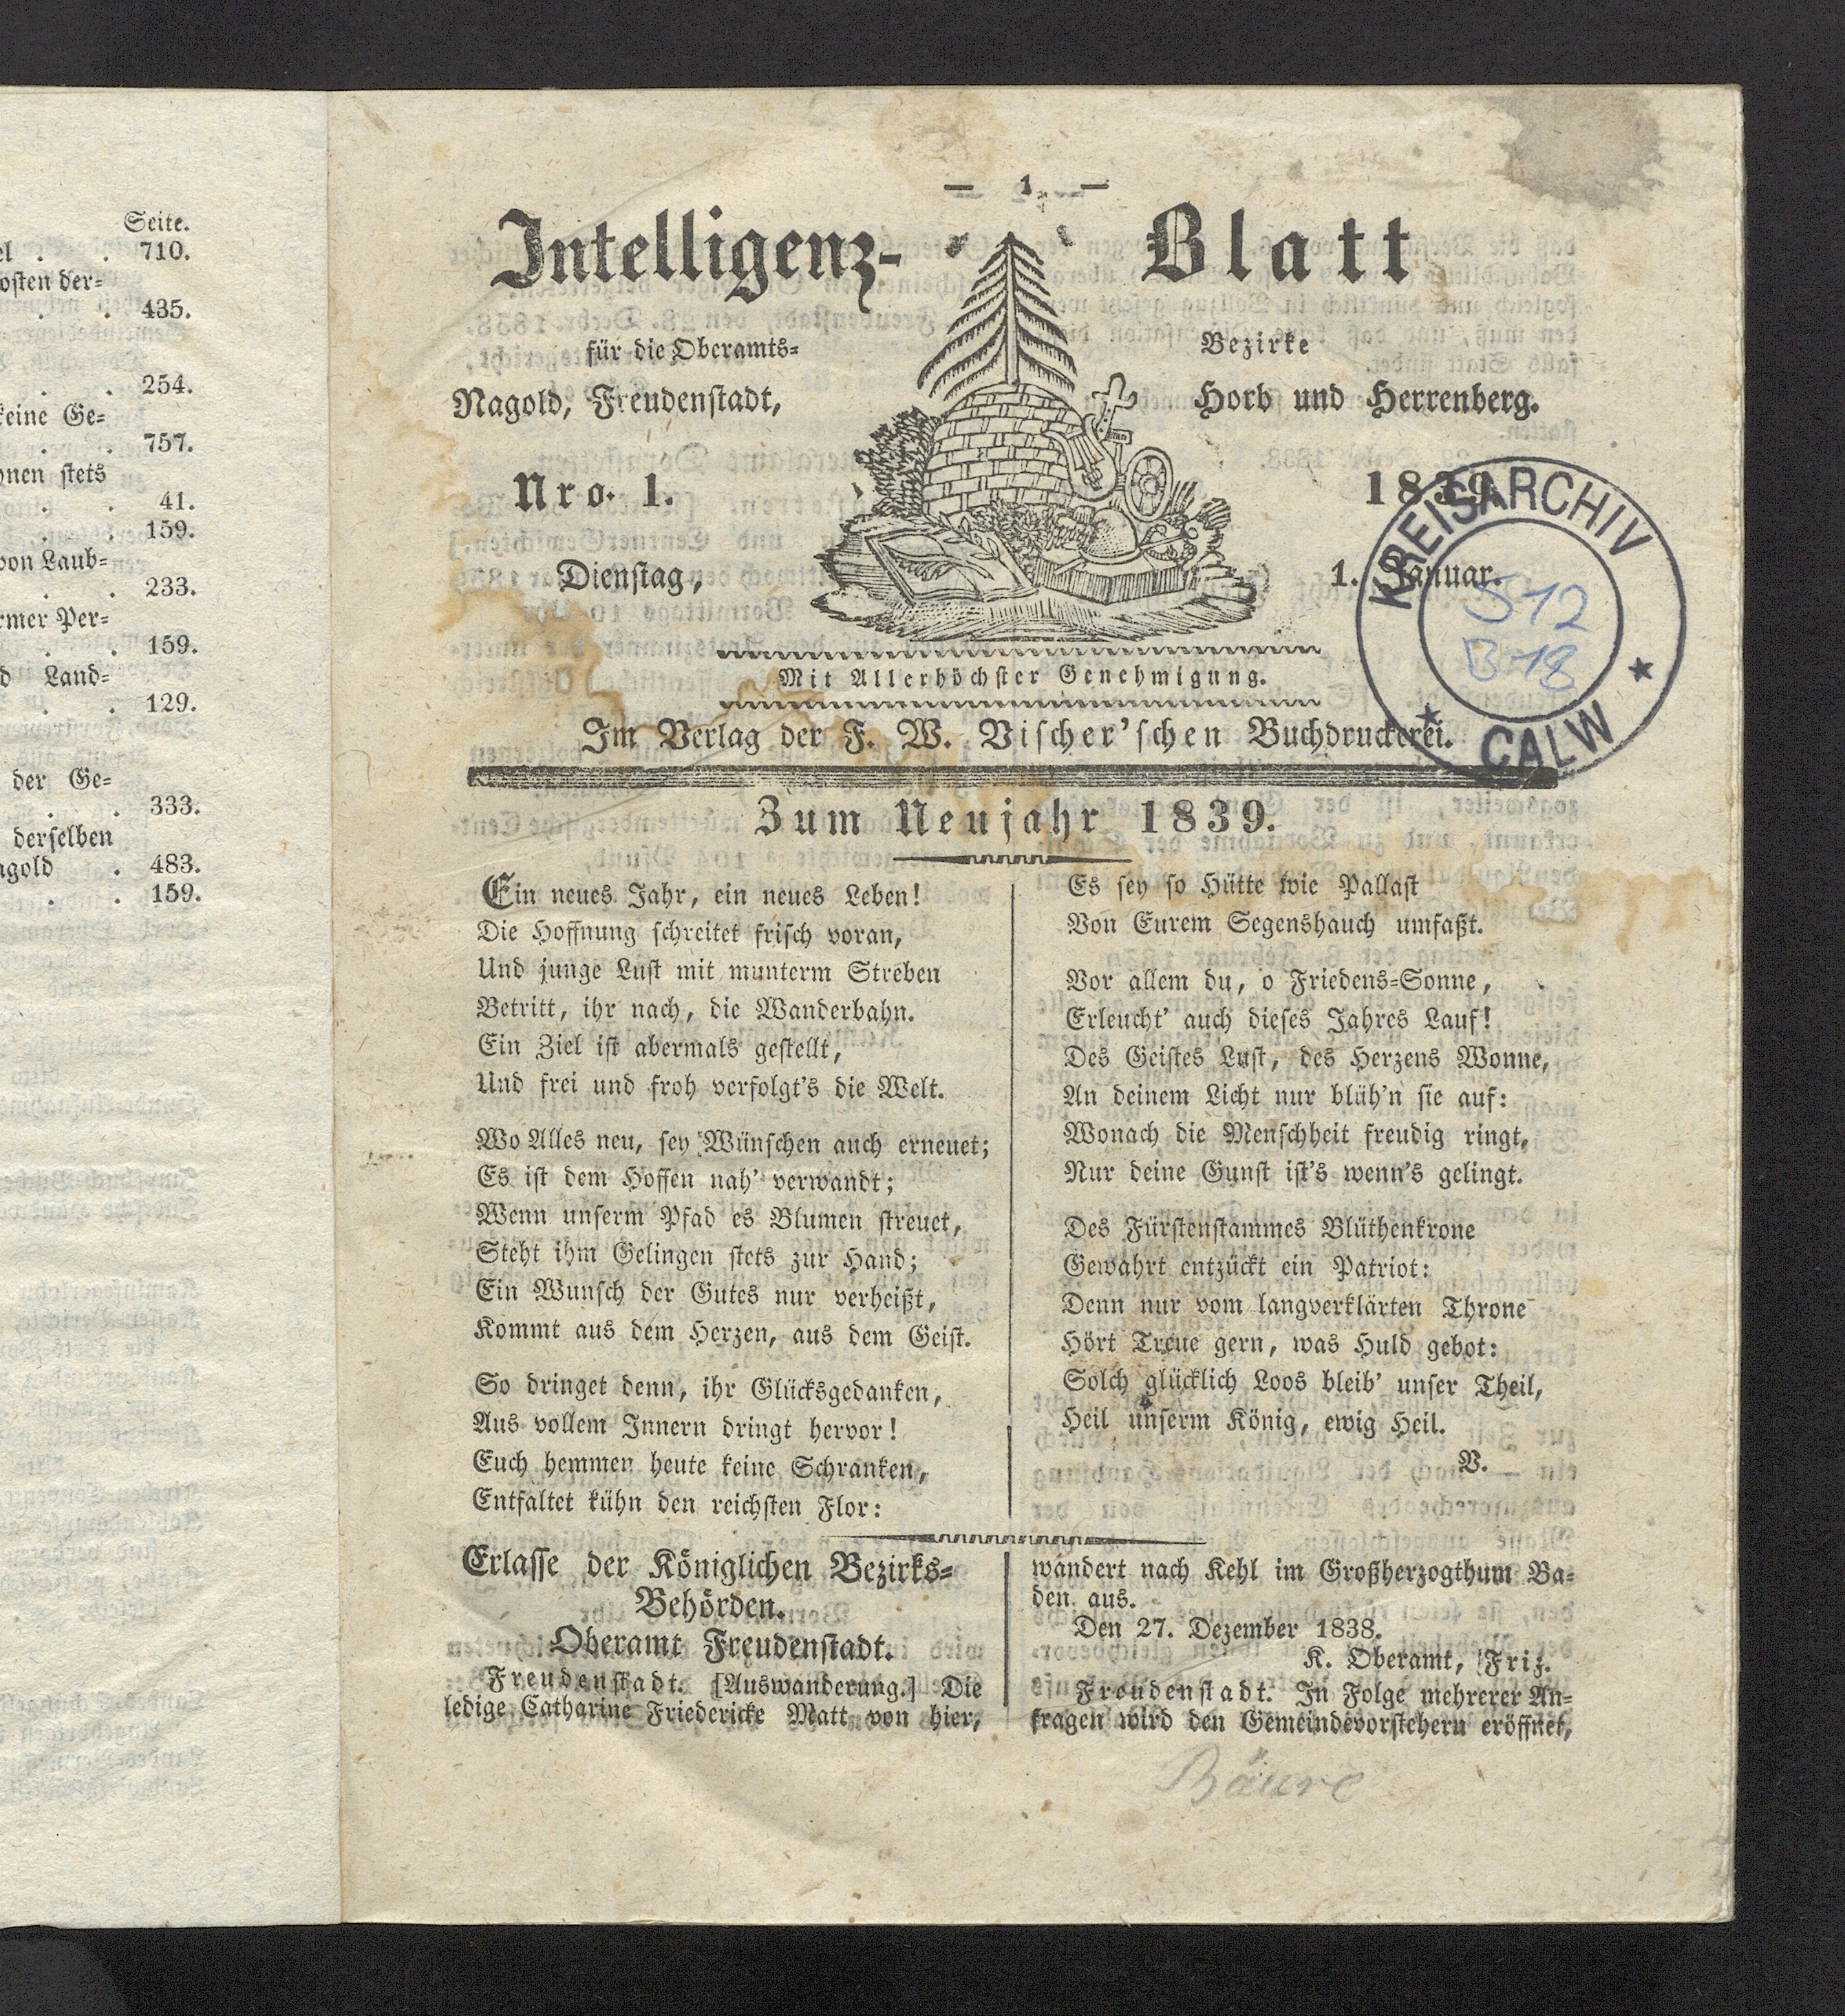 Seite.
el . . 710.
osten der-
. . 435.
. . 254.
keine Ge-
. . 757.
onen stets
. . 41.
. . 159.
von Laub-
. . 233.
rmer Per-
. . 159.
d Land-
. . 129.
der Ge-
. . 333.
derselben
agold . 483.
. . 159.
— 1. —
Intelligenz- Blatt
für die Oberamts- Bezirke
Nagold, Freudenstadt, Horb und Herrenberg.
Nro. 1. 1839.
Dienstag, 1. Januar.
KREISARCHIV
S12
B18
CALW
Mit Allerhöchster Genehmigung.
Im Verlag der F. W. Vischer'schen Buchdruckerei.
Zum Neujahr 1839.
Ein neues Jahr, ein neues Leben!
Die Hoffnung schreitet frisch voran,
Und junge Lust mit munterm Streben
Betritt, ihr nach, die Wanderbahn.
Ein Ziel ist abermals gestellt,
Und frei und froh verfolgt's die Welt.
Wo Alles neu, sey Wünschen auch erneuet;
Es ist dem Hoffen nah' verwandt;
Wenn unserm Pfad es Blumen streuet,
Steht ihm Gelingen stets zur Hand;
Ein Wunsch der Gutes nur verheißt,
Kommt aus dem Herzen, aus dem Geist.
So dringet denn, ihr Glücksgedanken,
Aus vollem Innern dringt hervor!
Euch hemmen heute keine Schranken,
Entfaltet kühn den reichsten Flor:
Es sey so Hütte wie Pallast
Von Eurem Segenshauch umfaßt.
Vor allem du, o Friedens-Sonne,
Erleucht' auch dieses Jahres Lauf!
Des Geistes Lust, des Herzens Wonne,
An deinem Licht nur blüh'n sie auf:
Wonach die Menschheit freudig ringt,
Nur deine Gunst ist's wenn's gelingt.
Des Fürstenstammes Blüthenkrone
Gewahrt entzückt ein Patriot:
Denn nur vom langverklärten Throne
Hört Treue gern, was Huld gebot:
Solch glücklich Loos bleib' unser Theil,
Heil unserm König, ewig Heil.
V.
Erlasse der Königlichen Bezirks-
Behörden.
Oberamt Freudenstadt.
Freudenstadt. [Auswanderung.] Die
ledige Catharine Friedericke Matt von hier,
wandert nach Kehl im Großherzogthum Ba-
den aus.
Den 27. Dezember 1838.
K. Oberamt, Friz.
Freudenstadt. In Folge mehrerer An-
fragen wird den Gemeindevorstehern eröffnet,
Bäure